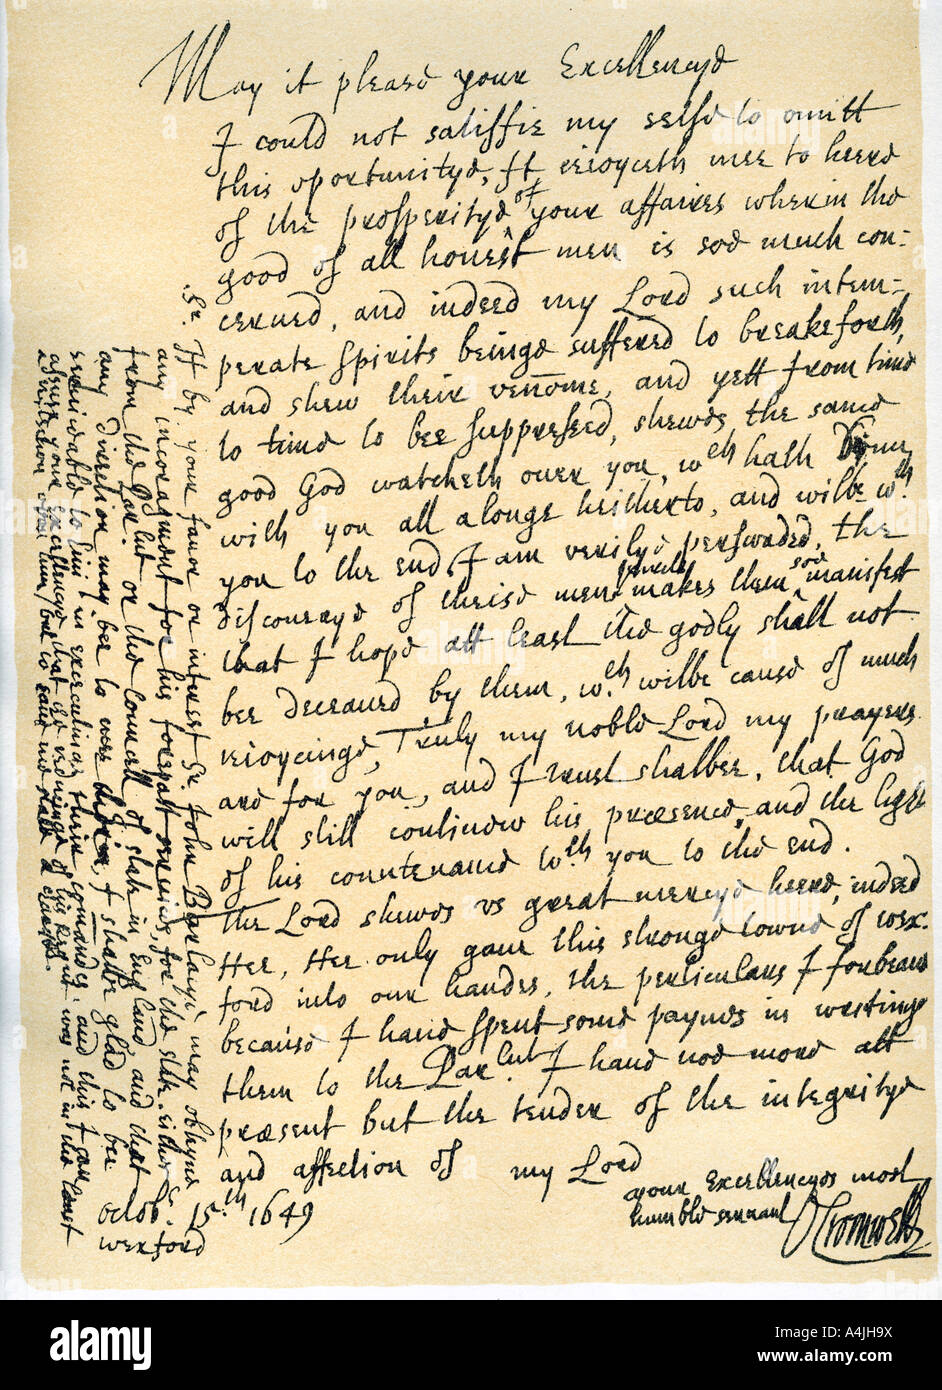 May it please your Excellencye
I could not satisffie my selfe to omitt
this oportunitye, It reioyceth mee to heere
of the prosperitye of your affaires wherin the
good of all honest men is soe much con=
cerned, and indeed my Lord such intem=
perate spirits beinge suffered to breake forth,
and shew their venōme, and yett from time
to time to bee suppressed, shewes the same
good God watcheth over you, wch hath binn
with you all alonge heitherto, and wilbe wth
you to the end, I am verilye perswaded, the
discourye of theise men makes them soe manifest
that I hope att least the godly shall not
bee deceaued by them, wch wilbe cause of much
reioycinge, Truly my noble Lord my prayers
are for you, and I trust shalbee, that God
will still continew his præsence, and the light
of his countenance wth you to the end.
The Lord shewes vs great mercye heere, indeed
Hee, Hee only gaue this stronge towne of wex:
ford into our handes, the perticulars I forbeare
because I haue spent some paynes in writinge
them to the Parlmt I haue noe more att
præsent but the tender of the integritye
and affection of my Lord
your Excellencyes most
humble seruant
O Cromwell
octobr. 15th 1649
wexford
Sr. If by your fauor or interest Sr John Barlaye may obteyne
any incoragment for his forepast seruices for the state either
from the Parlmt or the Councell of state in England and that
any direction may bee to mee therin, I shalbe glad to bee
seruiceable to him in executinge their comandes: and this I can
assure your Excellencye that the reducinge of his Regimt was not in the least